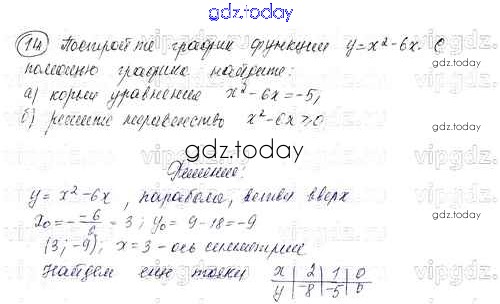 gdz.today
14 Постройте график функции y = x² - 6x. С
помощью графика найдите:
а) корни уравнения x² - 6x = -5;
б) решение неравенства x² - 6x ≥ 0
gdz.today
Решение:
y = x² - 6x, парабола, ветви вверх
x₀ = - -6/2 = 3; y₀ = 9 - 18 = -9
(3; -9); x = 3 - ось симметрии
Найдем еще точки x | 2 | 1 | 0
y | -8 | -5 | 0
gdz.today